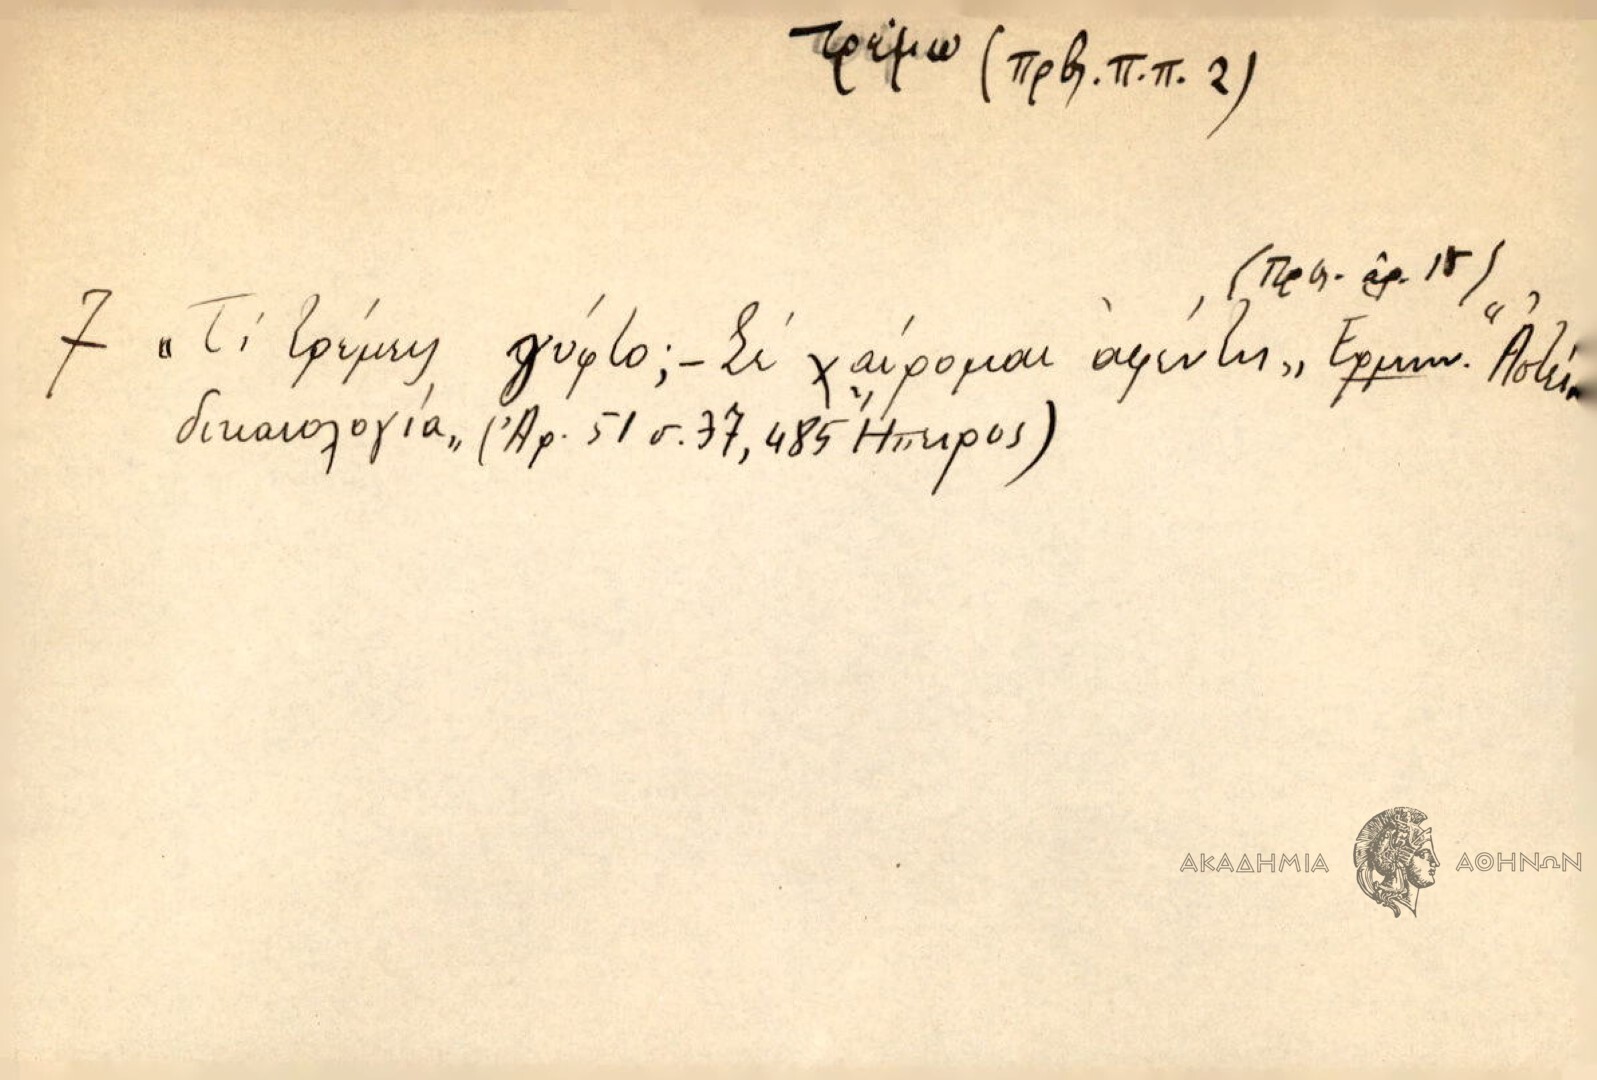 τρέμω (πρβ. π.π. 2)
(πρβ. ἀρ. 15)
7 "Τί τρέμεις γύφτο; - Σέ χαίρομαι ἀφέντη,, Ερμην. "Ἀστεία
δικαιολογία,, (Ἀρ. 51 σ. 37, 485 Ἤπειρος)
ΑΚΑΔΗΜΙΑ ΑΘΗΝΩΝ